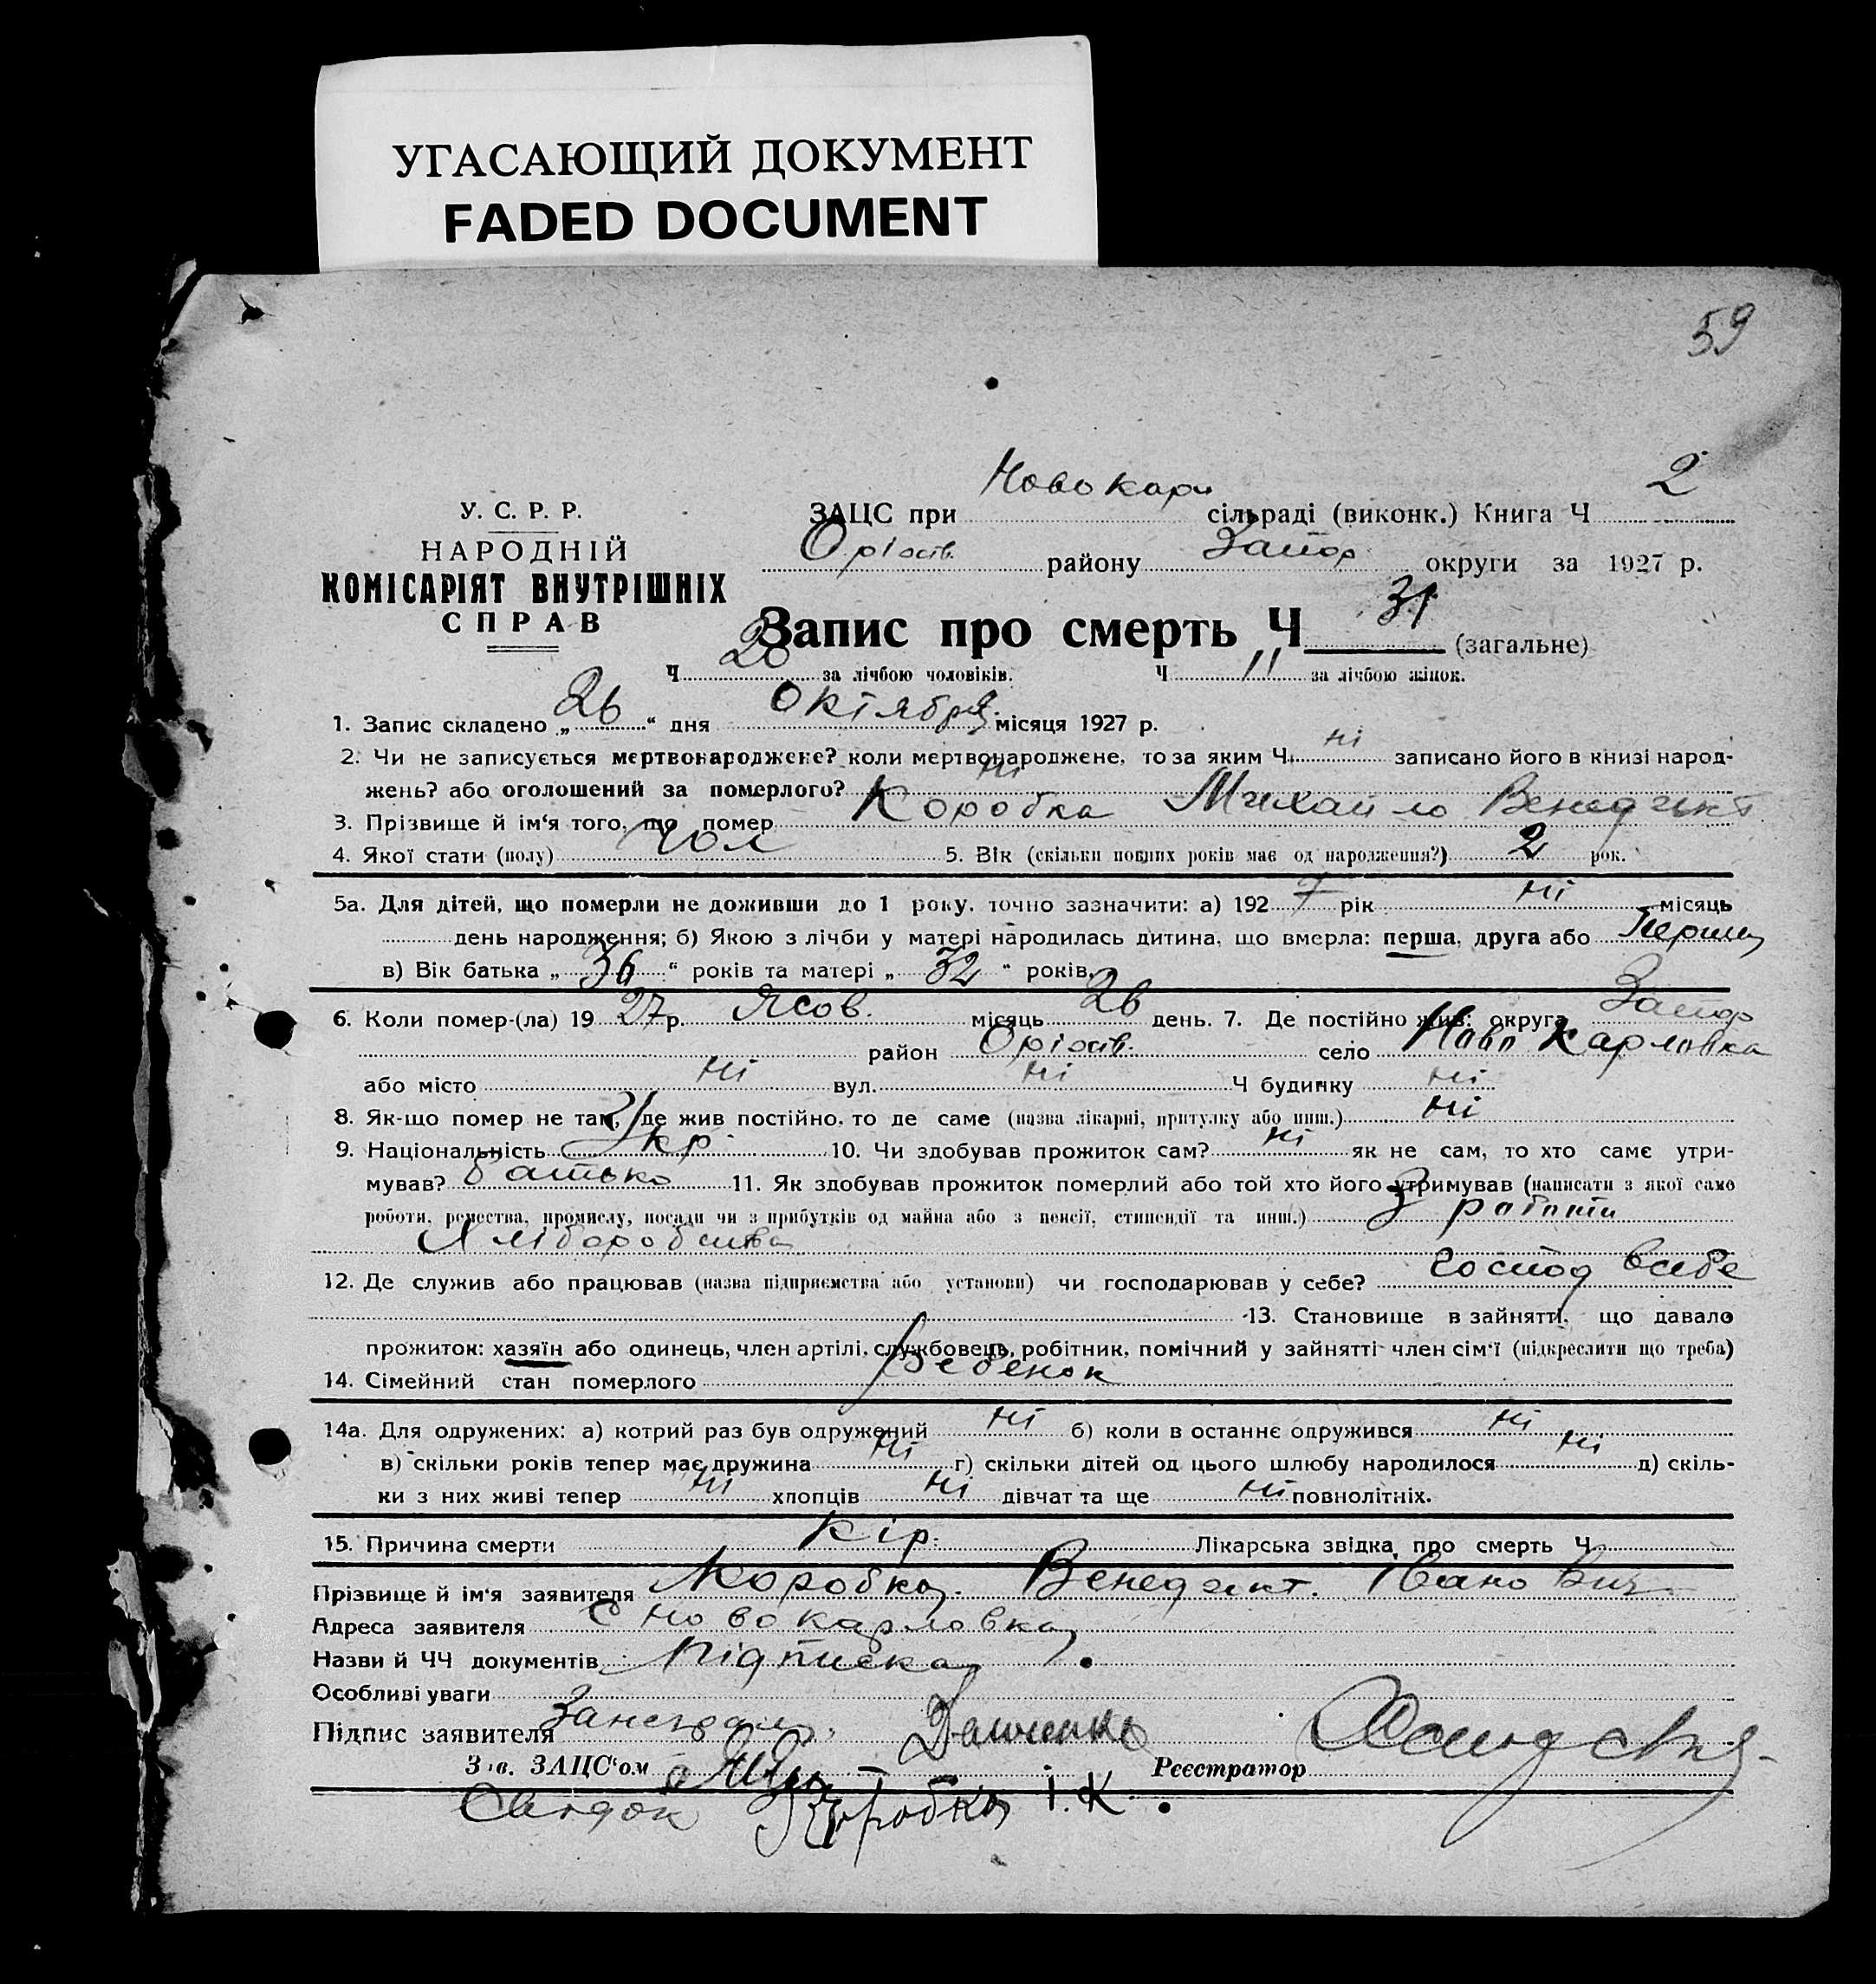 УГАСАЮЩИЙ ДОКУМЕНТ
FADED DOCUMENT
59
У. С. Р. Р.
НАРОДНІЙ
КОМІСАРІЯТ ВНУТРІШНІХ
СПРАВ
ЗАЦС при Ново кар сільраді (виконк.) Книга Ч 2
Оріхів. району Запор округи за 1927 р.
Запис про смерть Ч 31 (загальне)
Ч 20 за лічбою чоловіків. Ч 11 за лічбою жінок.
1. Запис складено „ 26 “ дня Октября місяця 1927 р.
2. Чи не записується мертвонароджене? коли мертвонароджене, то за яким Ч ні записано його в книзі народ-
жень? або оголошений за померлого? ні
3. Прізвище й ім‘я того, що помер Коробка Михайло Венедикт
4. Якої стати (полу) Чол 5. Вік (скільки повних років має од народження?) 2 рок.
5а. Для дітей, що померли не доживши до 1 року, точно зазначити: а) 192 7 рік ні місяць
день народження; б) Якою з лічби у матері народилась дитина, що вмерла: перша, друга або Перша
в) Вік батька „ 36 “ років та матері „ 32 “ років.
6. Коли помер-(ла) 19 27 р. місяць 26 день. 7. Де постійно жив: округа Запор
район Оріхів. село Ново Карловка
або місто ні вул. ні Ч будинку ні
8. Як-що помер не там, де жив постійно, то де саме (назва лікарні, притулку або инш.) ні
9. Національність Укр. 10. Чи здобував прожиток сам? ні як не сам, то хто саме утри-
мував? батько 11. Як здобував прожиток померлий або той хто його утримував (написати з якої само
роботи, ремества, промислу, посади чи з прибутків од майна або з пенсії, стипендії та инш.) З работи
Хліборобства
12. Де служив або працював (назва підприємства або установи) чи господарював у себе? Господ всебе
13. Становище в зайнятті, що давало
прожиток: хазяїн або одинець, член артілі, службовець, робітник, помічний у зайнятті член сім‘ї (підкреслити що треба)
14. Сімейний стан померлого Ребенок
14а. Для одружених: а) котрий раз був одружений ні б) коли в останнє одружився ні
в) скільки років тепер має дружина ні г) скільки дітей од цього шлюбу народилося ні д) скіль-
ки з них живі тепер ні хлопців ні дівчат та ще ні повнолітніх.
15. Причина смерти Кір. Лікарська звідка про смерть Ч
Прізвище й ім‘я заявителя Коробка. Венедикт. Іванович
Адреса заявителя с Новокарловка
Назви й ЧЧ документів Підписка
Особливі уваги
Підпис заявителя
Зав. ЗАЦС‘ом Реєстратор
Свідок Коробка І. К.